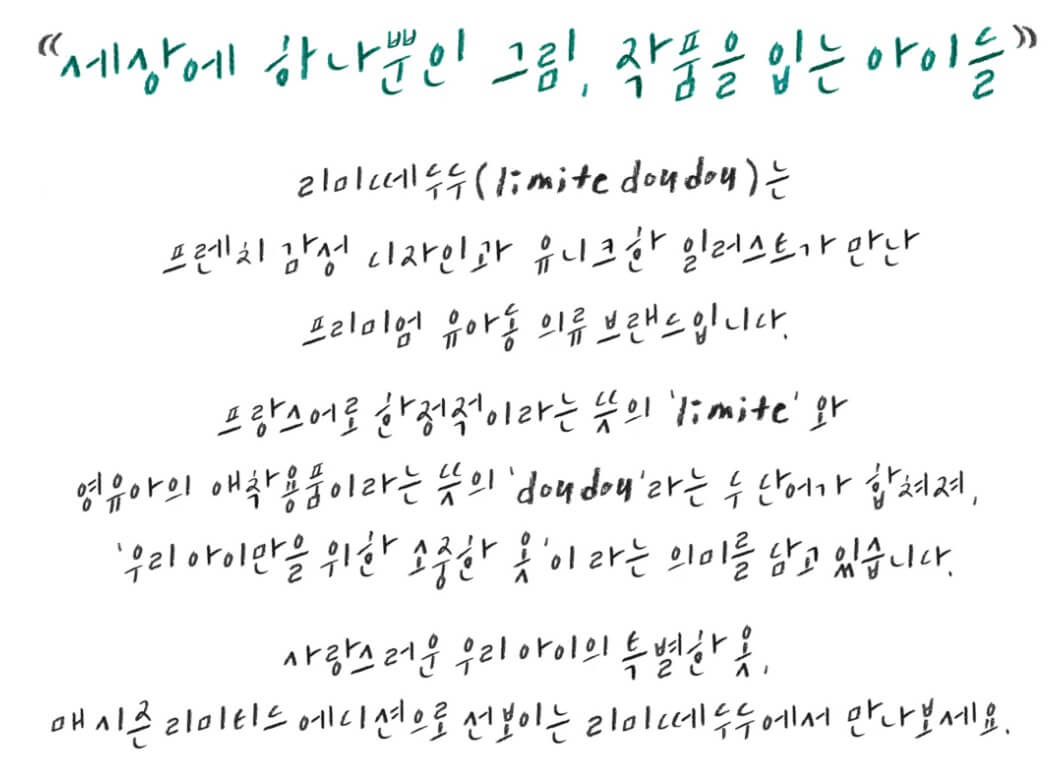 “세상에 하나뿐인 그림, 작품을 입는 아이들”
리미떼두두(limite doudou)는
프렌치 감성 디자인과 유니크한 일러스트가 만난
프리미엄 유아동 의류 브랜드입니다.
프랑스어로 한정적이라는 뜻의 'limite' 와
영유아의 애착용품이라는 뜻의 'doudou'라는 두 단어가 합쳐져,
'우리 아이만을 위한 소중한 옷'이라는 의미를 담고 있습니다.
사랑스러운 우리 아이의 특별한 옷,
매시즌 리미티드 에디션으로 선보이는 리미떼두두에서 만나보세요.